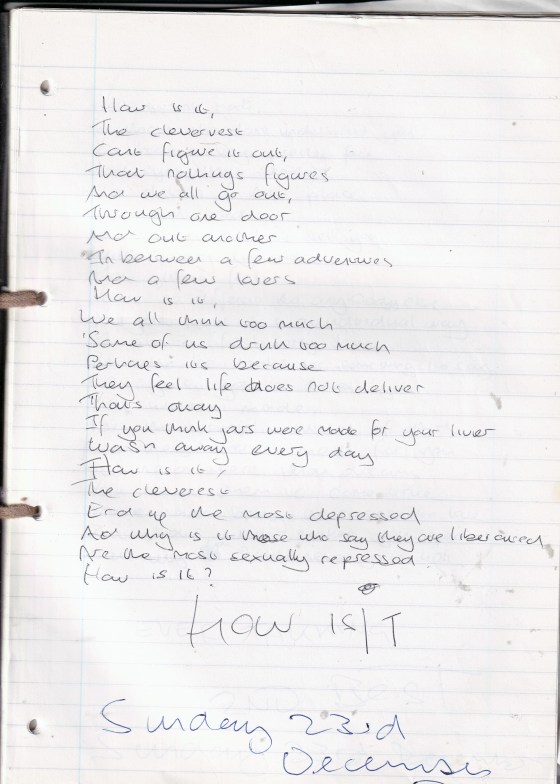 How is it,
The clevervest
Cant figure it out,
That nothings figures
And we all go out,
Through one door
And out another
In between a few adventures
And a few lovers
How is it,
We all think too much
Some of us drink too much
Perhaps its because
They feel life does not deliver
Thats okay
If you think jars were made for your liver
Wash away every day
How is it,
The cleverest
End up the most depressed
And why is it those who say they are liberated
Are the most sexually repressed
How is it?
HOW IS IT
Sunday 23rd
December